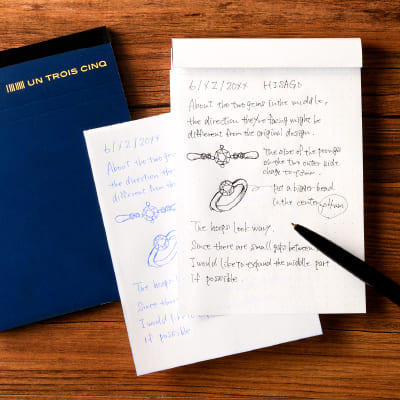 UN TROIS CINQ
6/XZ/20XX HISAGO
About the two gems in the middle,
the direction they're facing might be
different from the original design.
The size of the prongs
on the two outer side
change to 0.9mm.
put a bigger bead
in the center.
The hoops look wavy.
Since there are small gaps between
I would like to expand the middle part
if possible.
6/XZ/20XX
About the two
the direction the
different from th
The hoops
Since there
I would like to
if possible